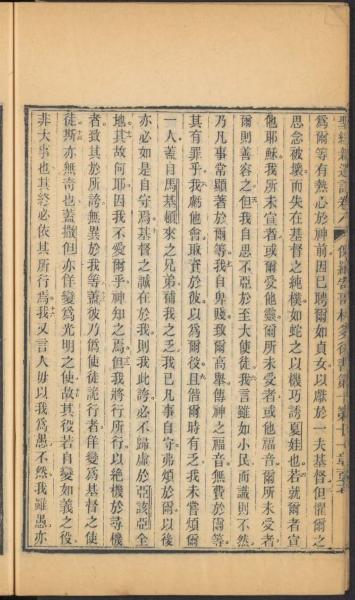 聖經新遺詔卷八 傳羅哥林多後書第十章廿一章至七
爲爾等有熱心於神前因已聘爾如貞女以獻於一夫基督但懼爾之
思念被壞而失在基督之純樸如蛇之以機巧誘夏娃也若就爾者宣
他耶穌我所未宣者或爾受他靈爾所未受者或他福音爾所未受者
爾則善容之但我自思不亞於至大使徒我言雖如小民而識則不然
乃凡事常顯著於爾等我自卑賤致爾高舉傳神之福音無費於爾等
其有罪乎我虧他會取賚於彼以爲爾役且偕爾時有乏我未嘗煩爾
一人蓋自馬基頓來之兄弟補我之乏我已凡事自守弗煩於爾以後
亦必如是自守焉基督之誠在於我則我此誇必不歸虛於亞該亞全
地其故何耶因我不愛爾乎神知之焉但我將行所行以絕機於尋機
者致其於所誇無異於我等蓋彼乃僞使徒詭行者佯變爲基督之使
徒斯亦無奇也蓋撒但亦佯變爲光明之使故其役若自變如義之役
非大事也其終必依其所行焉我又言人毋以我爲愚不然我雖愚亦